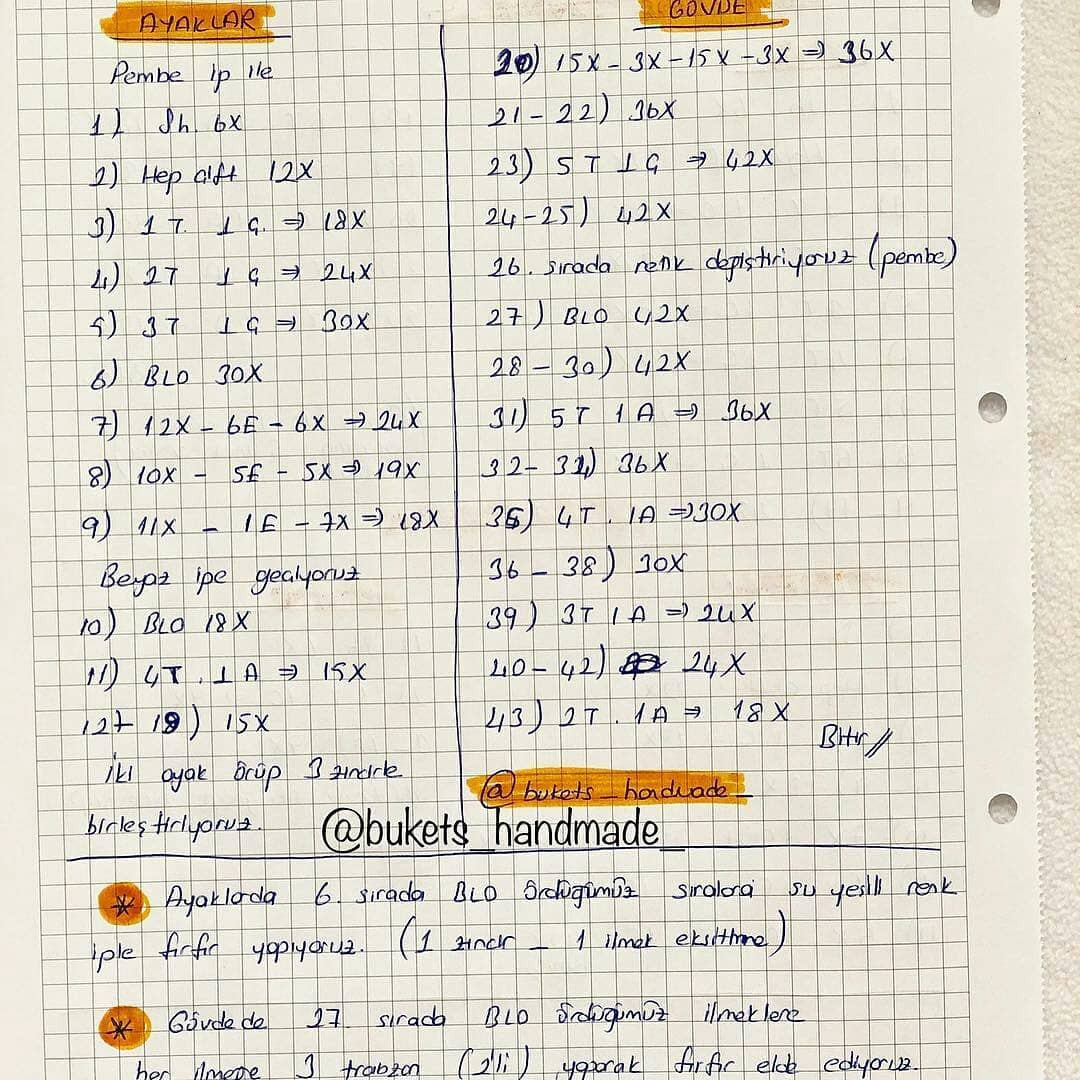 AYAKLAR
Pembe ip ile
1) Sh. 6X
2) Hep çift 12X
3) 1T. 1G. ⇒ 18X
4) 2T 1G ⇒ 24X
5) 3T 1G ⇒ 30X
6) BLO 30X
7) 12X - 6E - 6X ⇒ 24X
8) 10X - 5E - 5X ⇒ 19X
9) 11X - 1E - 7X ⇒ 18X
Beyaz ipe geçiyoruz
10) BLO 18X
11) 4T. 1A ⇒ 15X
12-19) 15X
İki ayak örüp 3 zincirle
birleştiriyoruz.
GÖVDE
20) 15X - 3X - 15X - 3X ⇒ 36X
21 - 22) 36X
23) 5T 1G ⇒ 42X
24-25) 42X
26. sırada renk değiştiriyoruz (pembe)
27) BLO 42X
28 - 30) 42X
31) 5T 1A ⇒ 36X
32- ) 36X
35) 4T. 1A ⇒ 30X
36 - 38) 30X
39) 3T 1A ⇒ 24X
40 - 42) 24X
43) 2T. 1A ⇒ 18X
Bitir //
@bukets_handmade_
@bukets_handmade_
* Ayaklarda 6. sırada BLO ördüğümüz sıralara su yeşili renk
iple fırfır yapıyoruz. (1 zincir - 1 ilmek eksiltme)
* Gövdede 27. sırada BLO ördüğümüz ilmeklere
her ilmeğe 3 trabzan (2'li) yaparak fırfır elde ediyoruz.